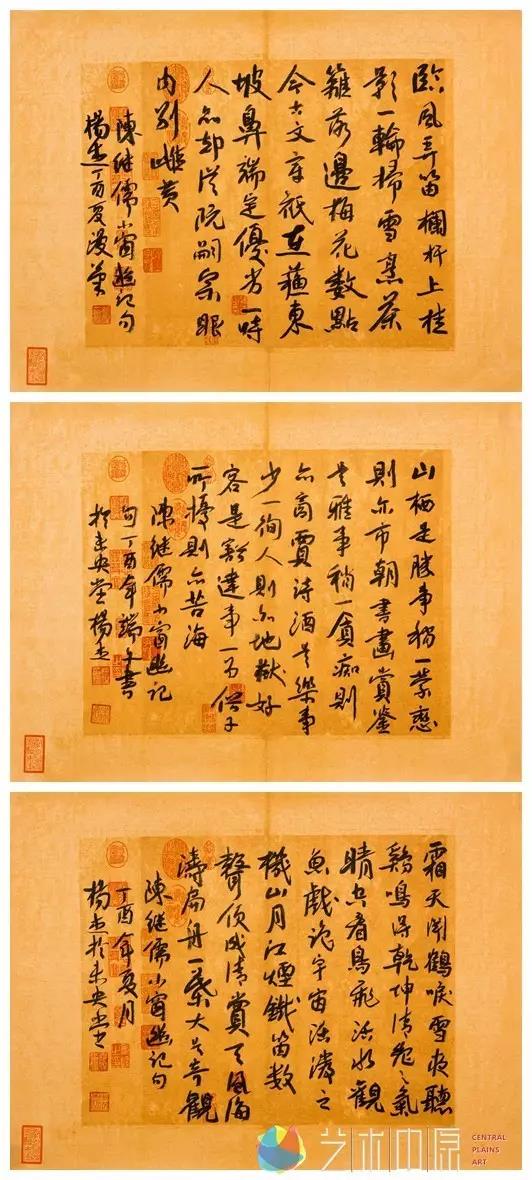 臨風弄笛欄杆上桂
影一輪掃雪烹茶
籬落邊梅花數點
今古文章祇在蘇東
坡鼻端定優劣一時
人品却從阮嗣宗眼
內別雌黃
陳继儒小窗幽記句
楊杰丁酉夏漫筆
山栖是勝事稍一縈戀
則亦市朝書畫賞鑒
是雅事稍一貪痴則
亦商賈詩酒是樂事
少一徇人則亦地獄好
客是豁達事一為俗子
所擾則亦苦海
陳继儒小窗幽記
句丁酉年端午書
於未央堂楊杰
霜天聞鶴唳雪夜聽
鷄鳴得乾坤清絕之氣
晴空看鳥飛活水觀
魚戲識宇宙活潑之
機山月江煙鐵笛數
聲便成清賞天風海
濤扁舟一葉大是奇觀
陳继儒小窗幽記句
丁酉年夏月
楊杰於未央堂
艺术中原
CENTRAL
PLAINS
ART